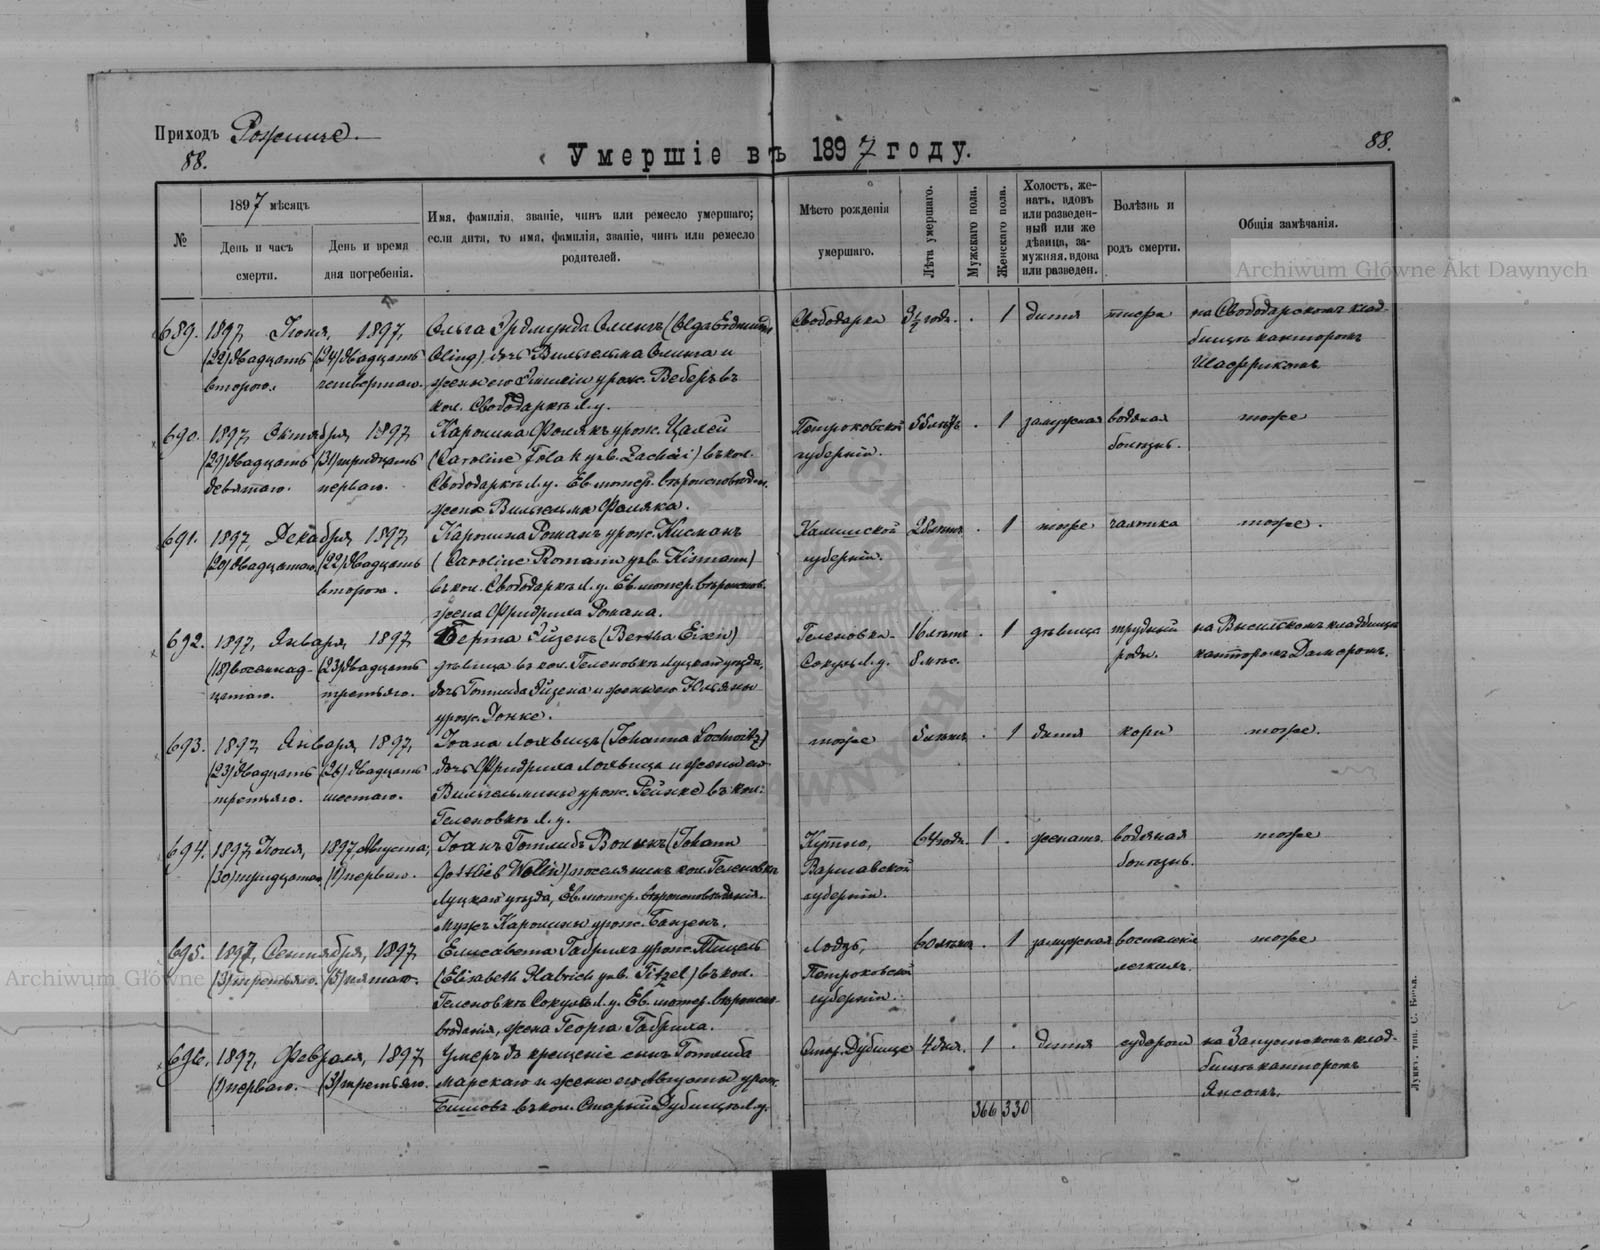 Приходъ Рожище.
88.
Умершіе въ 1897 году.
88.
№
1897 мѣсяцъ
День и часъ смерти.
День и время дня погребенія.
Имя, фамилія, званіе, чинъ или ремесло умершаго;
если дитя, то имя, фамилія, званіе, чинъ или ремесло
родителей.
Мѣсто рожденія
умершаго.
Лѣта умершаго.
Мужскаго пола.
Женскаго пола.
Холостъ, же-
натъ, вдовъ
или разведен-
ный или же
дѣвица, за-
мужняя, вдова
или разведен.
Болѣзнь и
родъ смерти.
Общія замѣчанія.
Archiwum Główne Akt Dawnych
689. 1897, Іюня, 1897, Ольга Эрдмунда Олингъ (Olga Erdmunde Свободарка 3½ года. . 1 дитя на Свободарскомъ клад-
(22) двадцать (24) двадцать Oling) дочь Вильгельма Олинга и бищѣ канторомъ
второго. четвертаго. жены его Эмиліи урож. Веберъ въ Шафрикомъ
кол. Свободаркѣ Л. у.
690. 1897, Октября, 1897, Каролина Фолякъ урож. Цахей Петроковской лѣтъ . 1 замужняя водяная тоже
(29) двадцать (31) тридцать (Caroline Folak geb. Zachäi) въ кол. губерніи. болѣзнь.
девятаго. перваго. Свободаркѣ Л. у. Ев. лютер. вѣроисповѣдан.
жена Вильгельма Фоляка.
691. 1897, Декабря, 1897, Каролина Романъ урож. Кисманъ Калишской 28 лѣтъ . 1 тоже чахотка тоже.
(20) двадцатаго. (22) двадцать (Caroline Romann geb. Kismann) губерніи.
второго. въ кол. Свободаркѣ Л. у. Ев. лютер. вѣроиспов.
жена Фридриха Романа.
692. 1897, Января, 1897, Берта Эйзенъ Геленовка 16 лѣтъ . 1 дѣвица трудный на Высилскомъ кладбищѣ
(18) восемнад- (23) двадцать дѣвица въ кол. Геленовкѣ Луцкаго уѣзда, Сокулъ Л. у. 5 мѣс. роды. канторомъ
цатаго. третьяго. дочь Готлиба Эйзена и жены его Юліяны
урож. Донке.
693. 1897, Января, 1897, Іоана Лохвицъ (Johanna Lochwitz) тоже 5 лѣтъ . 1 дитя корь тоже.
(23) двадцать (26) двадцать дочь Фридриха Лохвица и жены его
третьяго. шестаго. Вильгельмины урож. Рейнке въ кол.
Геленовкѣ Л. у.
694. 1897, Іюля, 1897, Августа, Іоанъ Готлибъ (Johann Кутно, 64 года. 1 . женатъ водяная тоже
(30) тридцатаго. (1) перваго. Gottlieb поселянинъ кол. Геленовки Варшавской болѣзнь.
Луцкаго уѣзда, Ев. лютер. вѣроисповѣданія. губерніи.
мужъ Каролины урож.
695. 1897, Сентября, 1897, Елисавета Габрихъ урож. Тицель Лодзь, 60 лѣтъ . 1 замужняя воспаленіе тоже
(3) третьяго. (5) пятаго. (Elisabeth Habrich geb. Titzel) въ кол. Петроковской легкихъ.
Геленовкѣ Сокулъ Л. у. Ев. лютер. вѣроиспо- губерніи.
вѣданія, жена Георга Габриха.
Archiwum Główne Akt Dawnych
696. 1897, Февраля, 1897, Умеръ до крещенія сынъ Готлиба Стар. Дубище 4 дня. 1 . дитя судороги на Запустскомъ клад-
(1) перваго. (3) третьяго. Марскаго и жены его Августы урож. бищѣ канторомъ
въ кол. Старый Дубищѣ Л. у. Янсомъ.
366 330
Луцкъ, тип. С. Бонка.